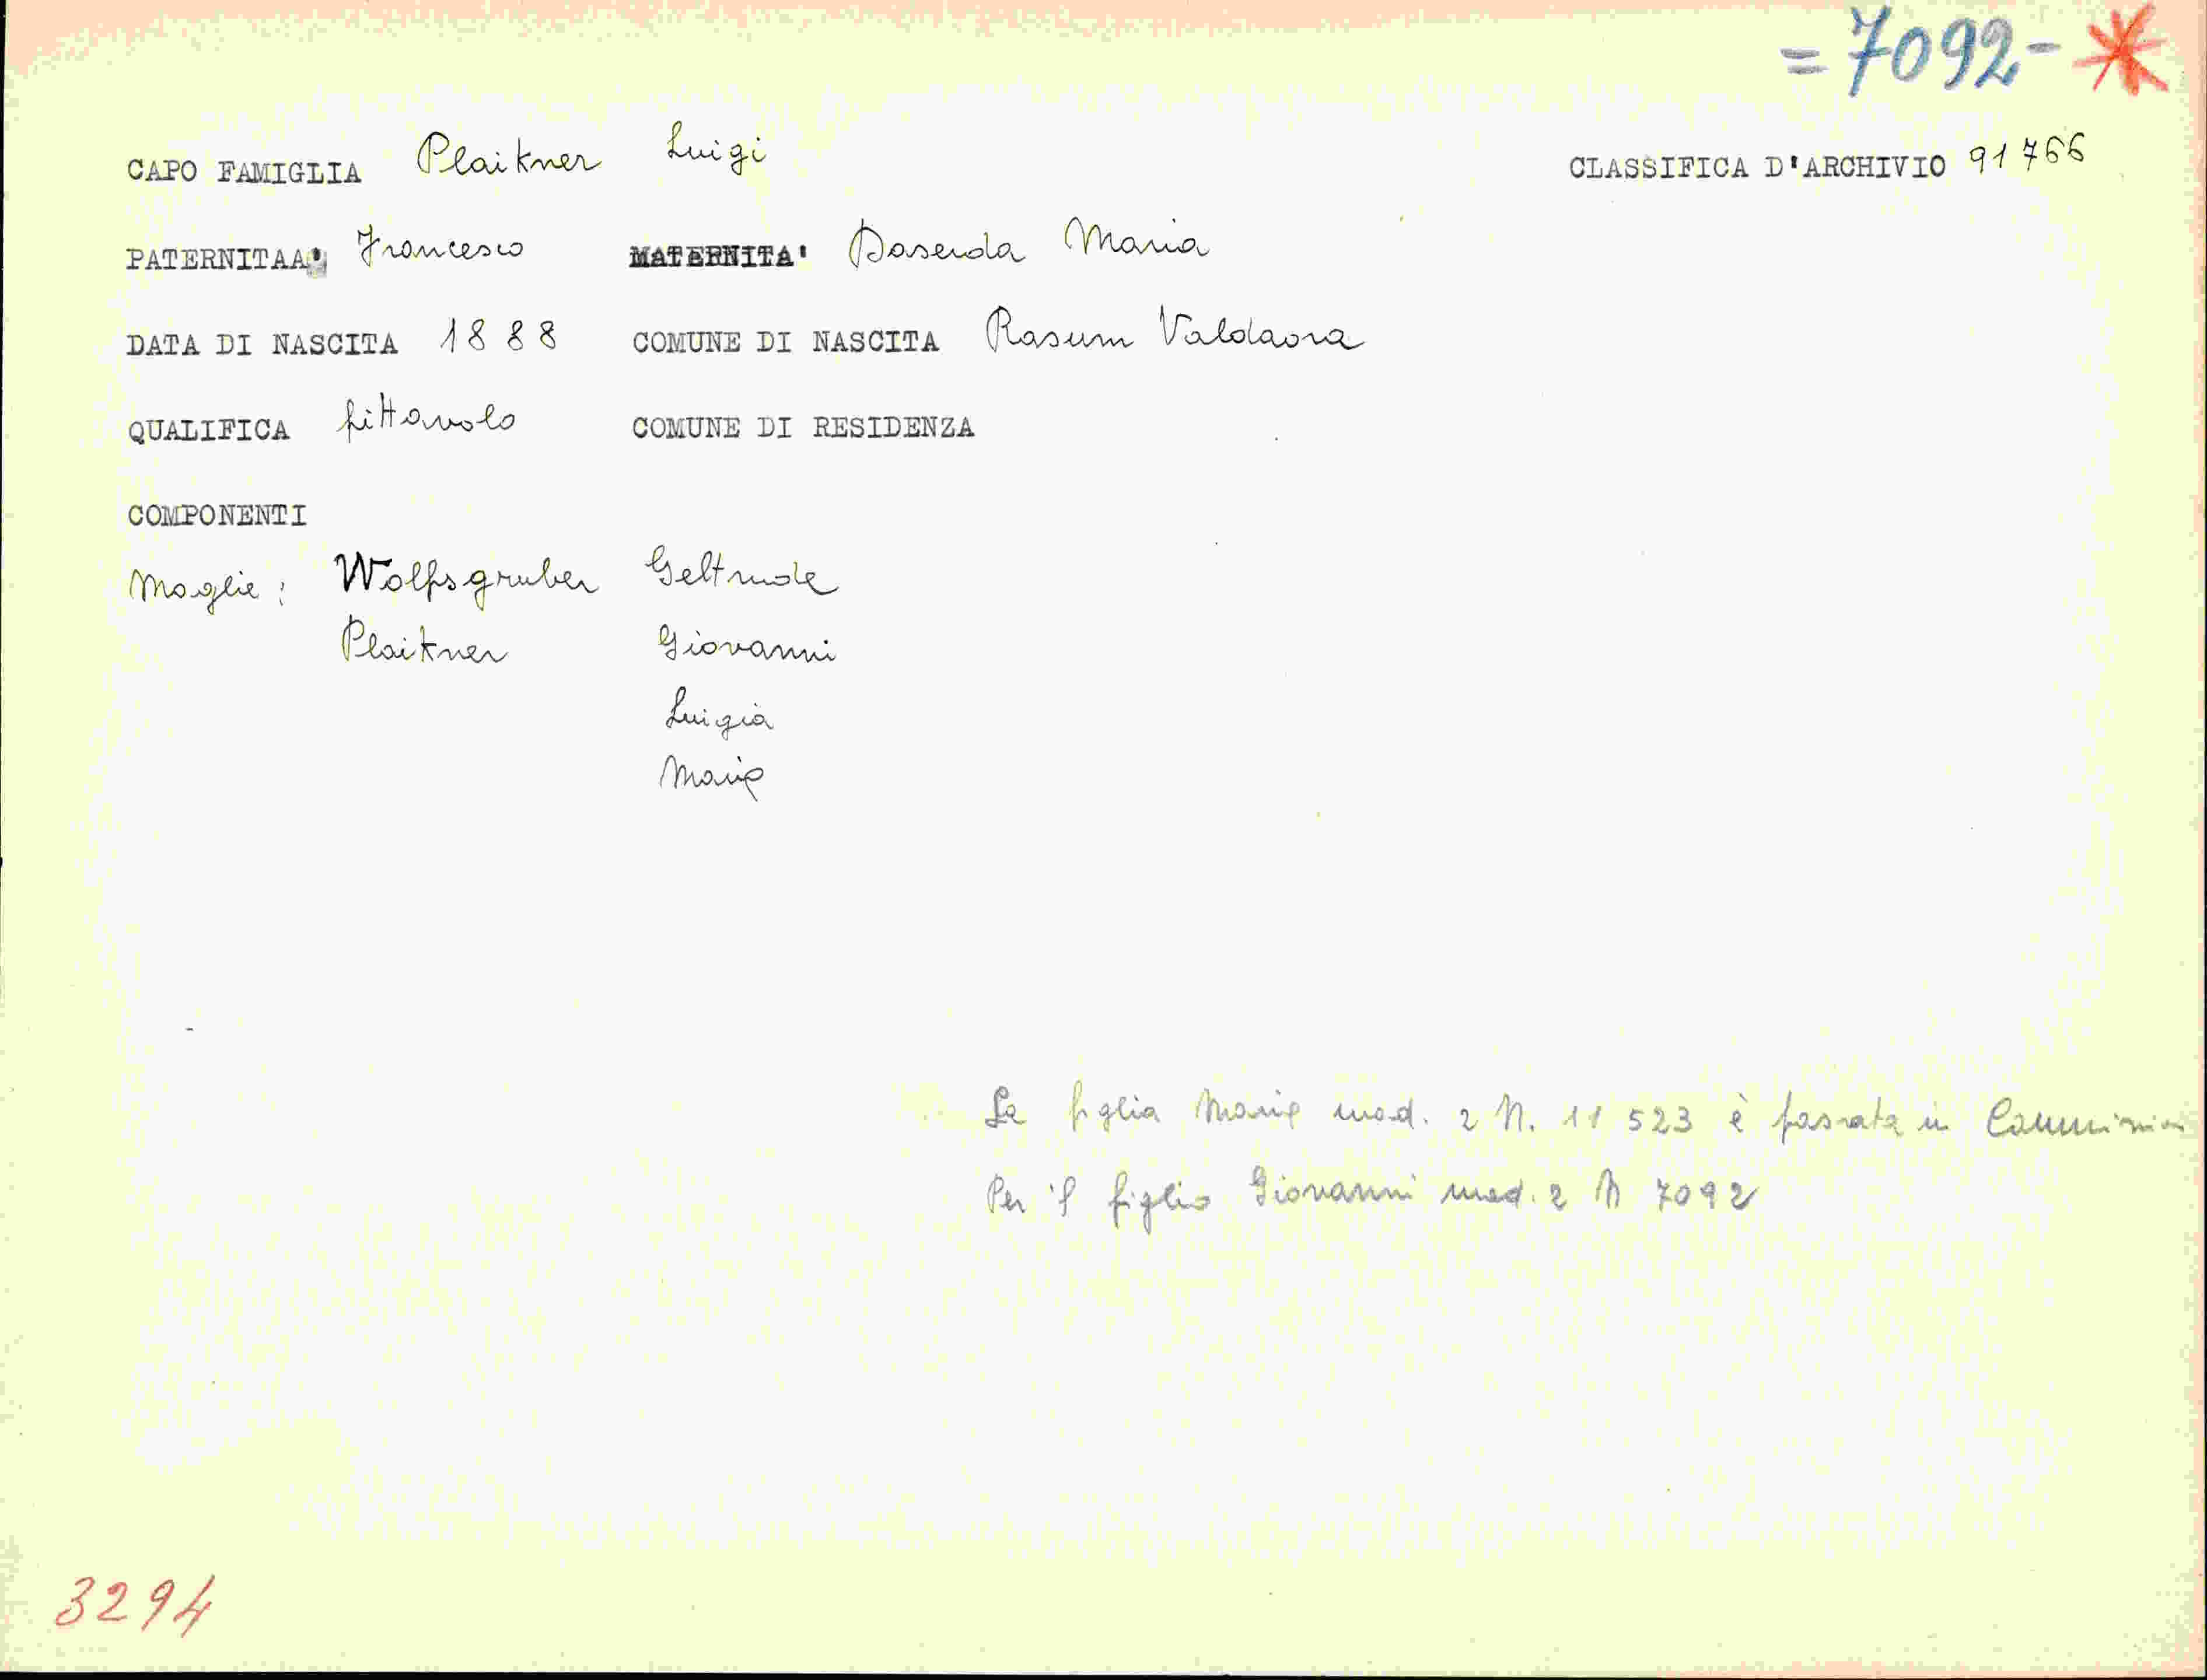 = 7092 - *
CAPO FAMIGLIA Plaikner Luigi CLASSIFICA D'ARCHIVIO 91766
PATERNITAA' Francesco MATERNITA' Maria
DATA DI NASCITA 1888 COMUNE DI NASCITA Rasum Valdaora
QUALIFICA fittavolo COMUNE DI RESIDENZA
COMPONENTI
Moglie: Wolfsgruber Geltrude
Plaikner Giovanni
Luigia
Maria
La figlia Maria mod. 2 N. 11523 è passata in
Per il figlio Giovanni mod. 2 N 7092
3294